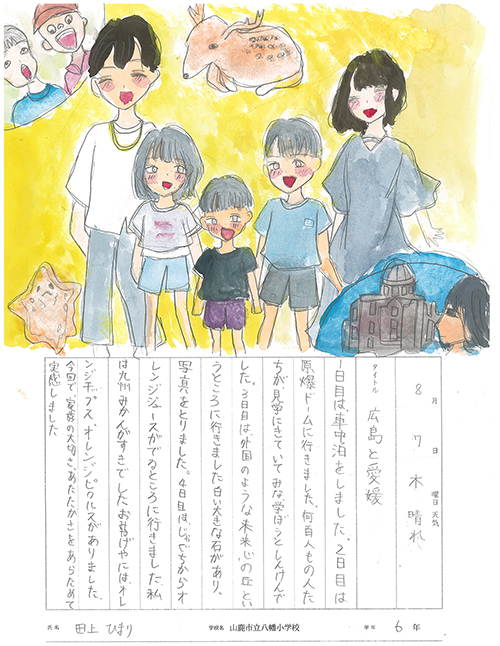 8月7日木曜日天気晴れ
タイトル 広島と愛媛
1日目は、車中泊をしました、2日目は
原爆ドームに行きました、何百人もの人た
ちが見学にきていてみな学ぼうとしんけんで
した。3日目は外国のような未来心の丘とい
うところに行きました白い大きな石があり、
写真をとりました。4日目は、じゃぐちからオ
レンジジュースがでるところに行きました、私
は九州みかんがすきでしたお見げやにはオレ
ンジチップス、オレンジピクルスがありました、
今回で、家族の大切さ、あたたかさをあらためて
実感しました
氏名 田上ひまり 学校名 山鹿市立八幡小学校 学年 6年